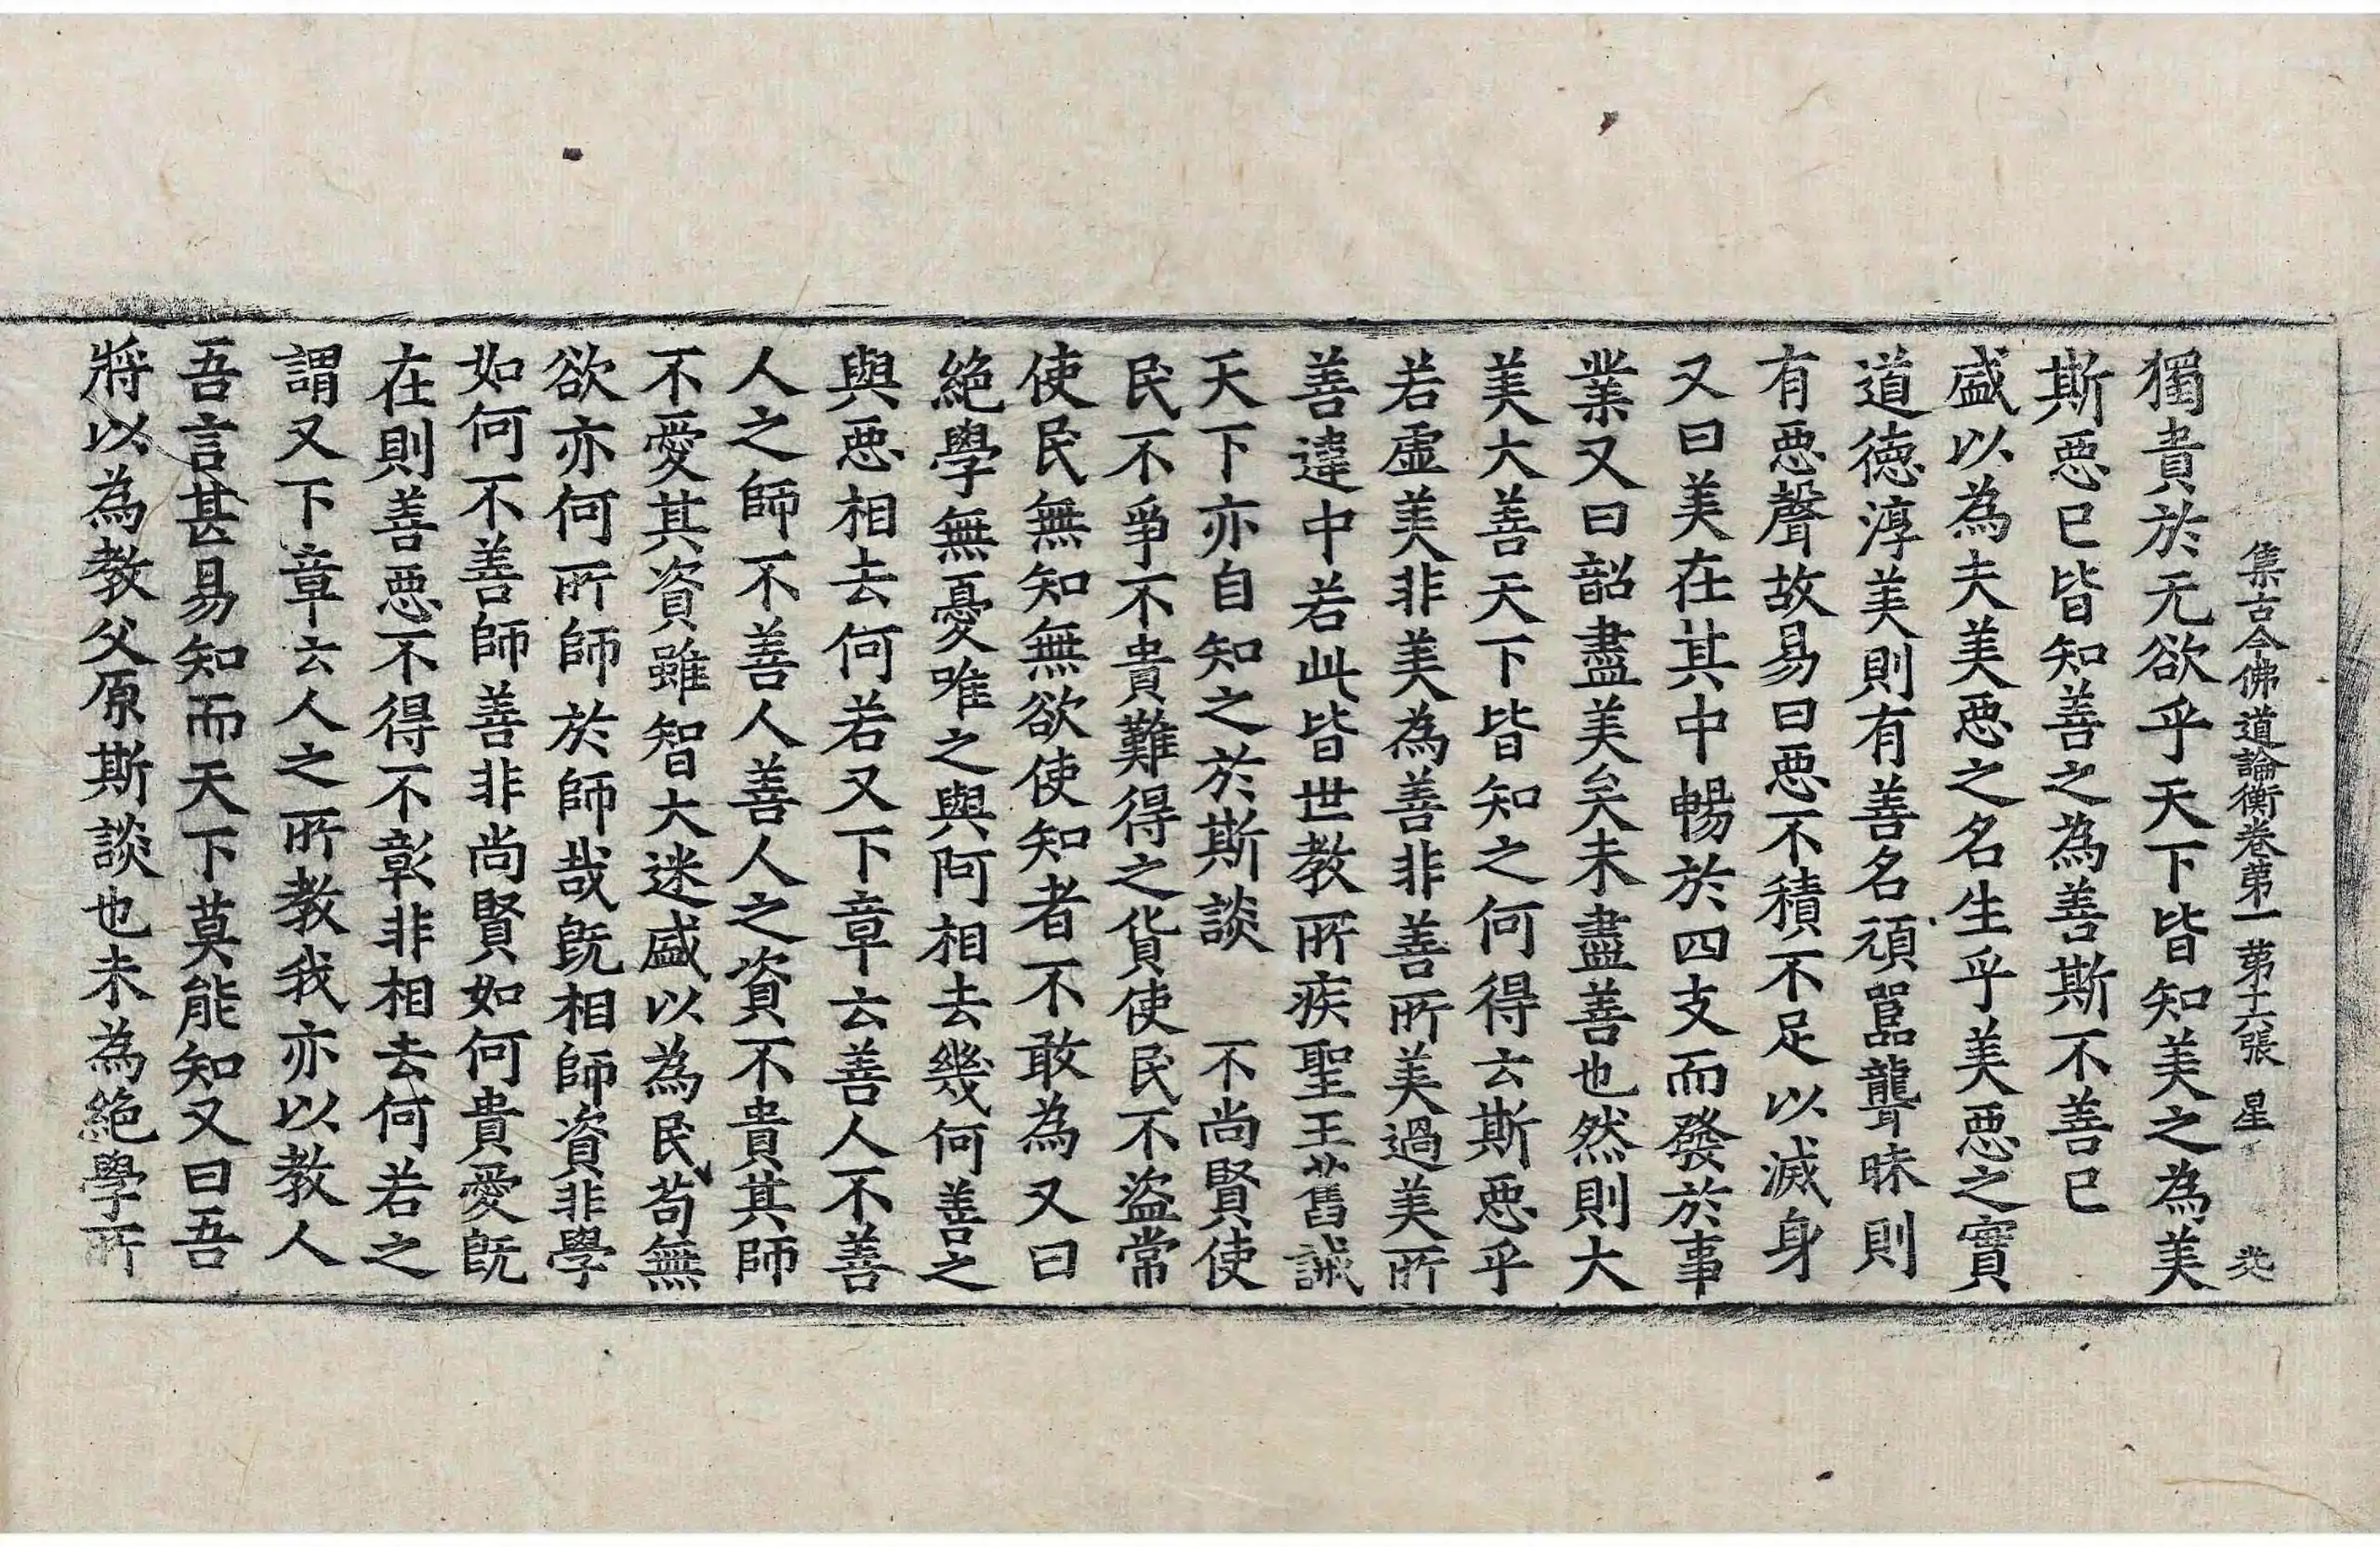 集古今佛道論衡卷第一 第十六張 星
獨貴於无欲乎天下皆知美之為美
斯惡已皆知善之為善斯不善已
盛以為夫美惡之名生乎美惡之實
道德淳美則有善名頑嚚聾昧則
有惡聲故易曰惡不積不足以滅身
又曰美在其中暢於四支而發於事
業又曰韶盡美矣未盡善也然則大
美大善天下皆知之何得云斯惡乎
若虛美非美為善非善所美過美所
善違中若此皆世教所疾聖王舊誡
天下亦自知之於斯談 不尚賢使
民不爭不貴難得之貨使民不盜常
使民無知無欲使知者不敢為又曰
絕學無憂唯之與阿相去幾何善之
與惡相去何若又下章云善人不善
人之師不善人善人之資不貴其師
不愛其資雖智大迷盛以為民苟無
欲亦何所師於師哉既相師資非學
如何不善師善非尚賢如何貴愛既
在則善惡不得不彰非相去何若之
謂又下章云人之所教我亦以教人
吾言甚易知而天下莫能知又曰吾
將以為教父原斯談也未為絕學所